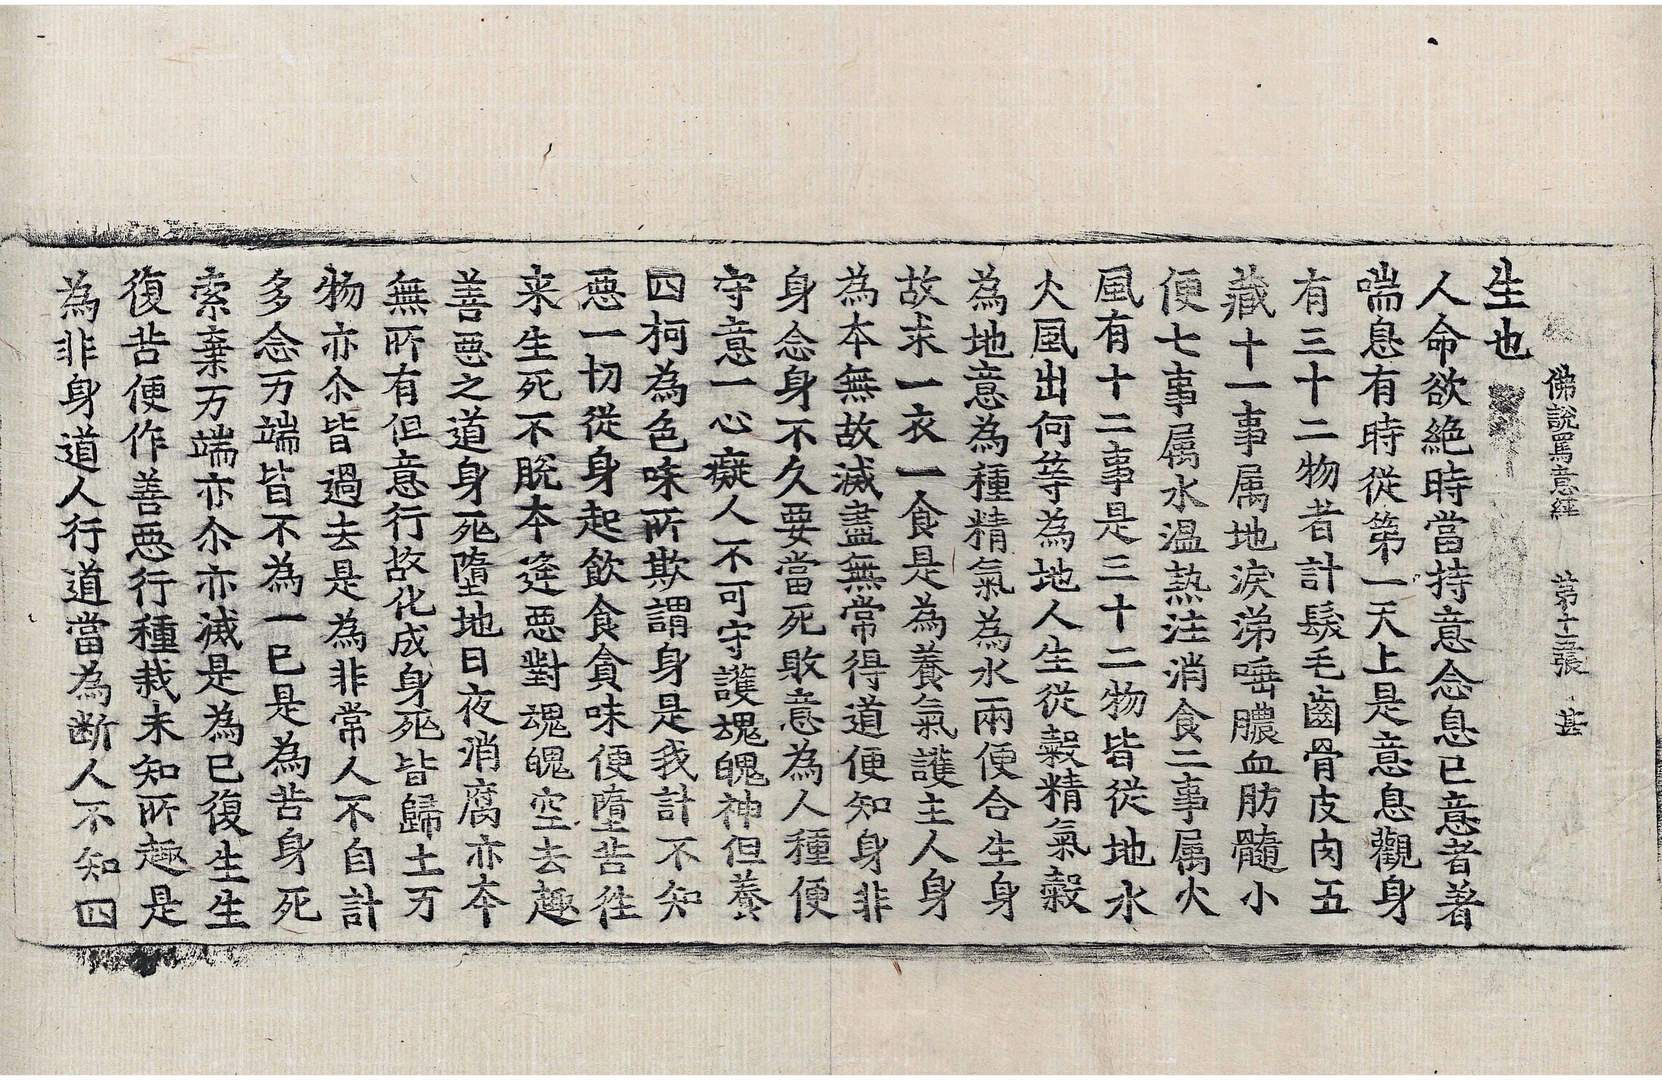 佛說罵意經　第十五張　甚
生也
人命欲絶時當持意念息已意者著
喘息有時從第一天上是意息觀身
有三十二物者計髮毛齒骨皮肉五
藏十一事属地淚涕唾膿血肪髓小
便七事属水温熱注消食二事属火
風有十二事是三十二物皆從地水
火風出何等為地人生從穀精氣穀
為地意為種精氣為水兩便合生身
故求一衣一食是為養氣護主人身
為本無故滅盡無常得道便知身非
身念身不久要當死敗意為人種便
守意一心癡人不可守護塊魄神但養
四柯為色味所欺謂身是我計不知
惡一切從身起飲食貪味便墮苦徃
来生死不脫本逄惡對魂魄空去趣
善惡之道身死墮地日夜消腐亦本
無所有但意行故化成身死皆歸土万
物亦尒皆過去是為非常人不自計
多念万端皆不為一已是為苦身死
索棄万端亦尒亦滅是為已復生生
復苦便作善惡行種栽未知所趣是
為非身道人行道當為断人不知四